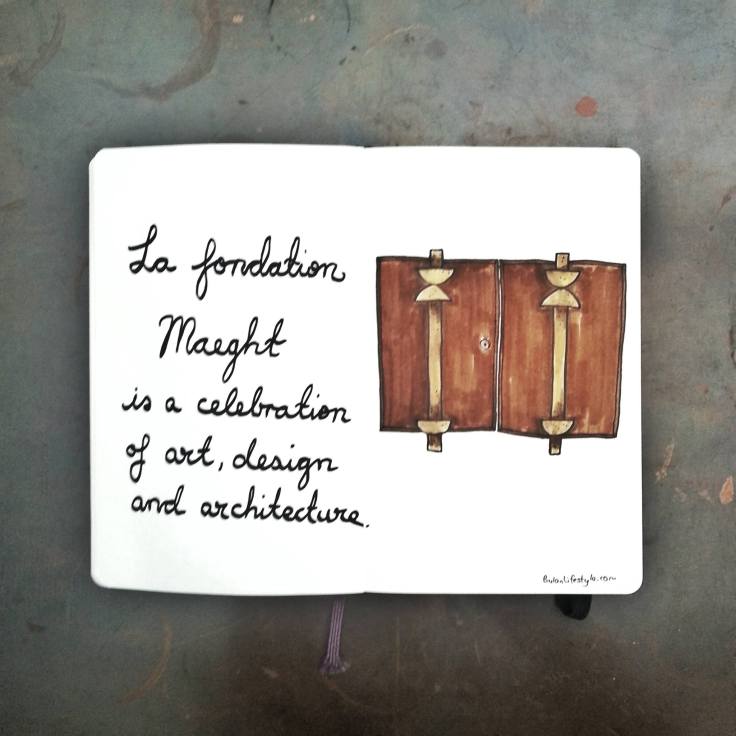 La fondation
Maeght
is a celebration
of art, design
and architecture.
BulanLifestyle.com